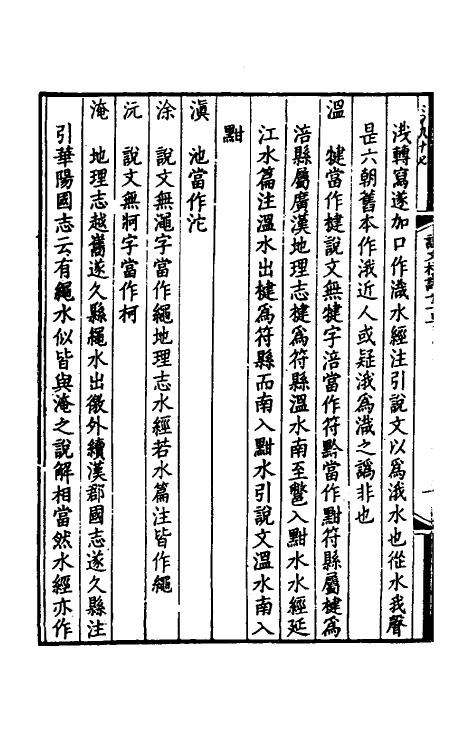 浅轉寫遂加口作濊水經注引說文以爲涐水也從水我聲
是六朝舊本作涐近人或疑涐爲濊之譌非也
溫　犍當作楗說文無犍字涪當作符黔當作黚符縣屬楗爲
涪縣屬廣漢地理志楗爲符縣溫水南至鷩入黚水水經延
江水篇注溫水出楗爲符縣而南入黚水引說文溫水南入
黚
滇　池當作沱
涂　說文無澠字當作繩地理志水經若水篇注皆作繩
沅　說文無牁字當作柯
淹　地理志越嶲遂久縣繩水出徼外續漢郡國志遂久縣注
引華陽國志云有繩水似皆與淹之說解相當然水經亦作